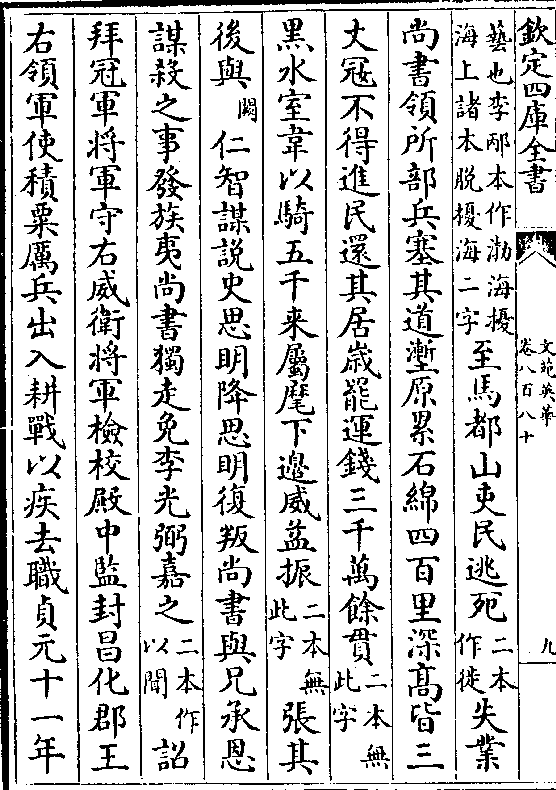 欽定四庫全書
文苑英華
卷八百八十
九
藝也李邴本作渤海擾
海上諸本脱擾海二字
至馬都山吏民逃死二本作徙失業
尚書領所部兵塞其道壍原累石綿四百里深髙皆三
丈冦不得進民還其居嵗罷運錢三千萬餘貫二本無此字
黒水室韋以騎五千来屬麾下邉威益振二本無此字張其
後與闕仁智謀説史思明降思明復叛尚書與兄承恩
謀殺之事發族夷尚書獨走免李光弼嘉之二本作以聞詔
拜冠軍将軍守右威衛将軍檢校殿中監封昌化郡王
右領軍使積粟厲兵出入耕戰以疾去職貞元十一年